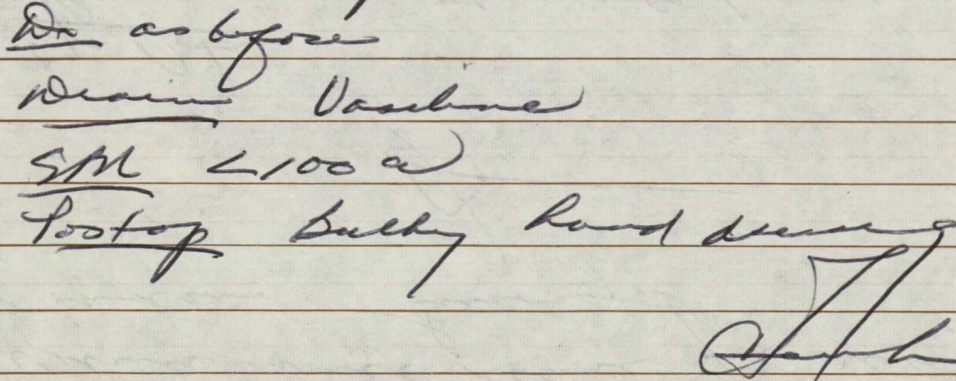 Dx as before
Drain Vaseline
<100 cc
Postop Bulky hand dressing